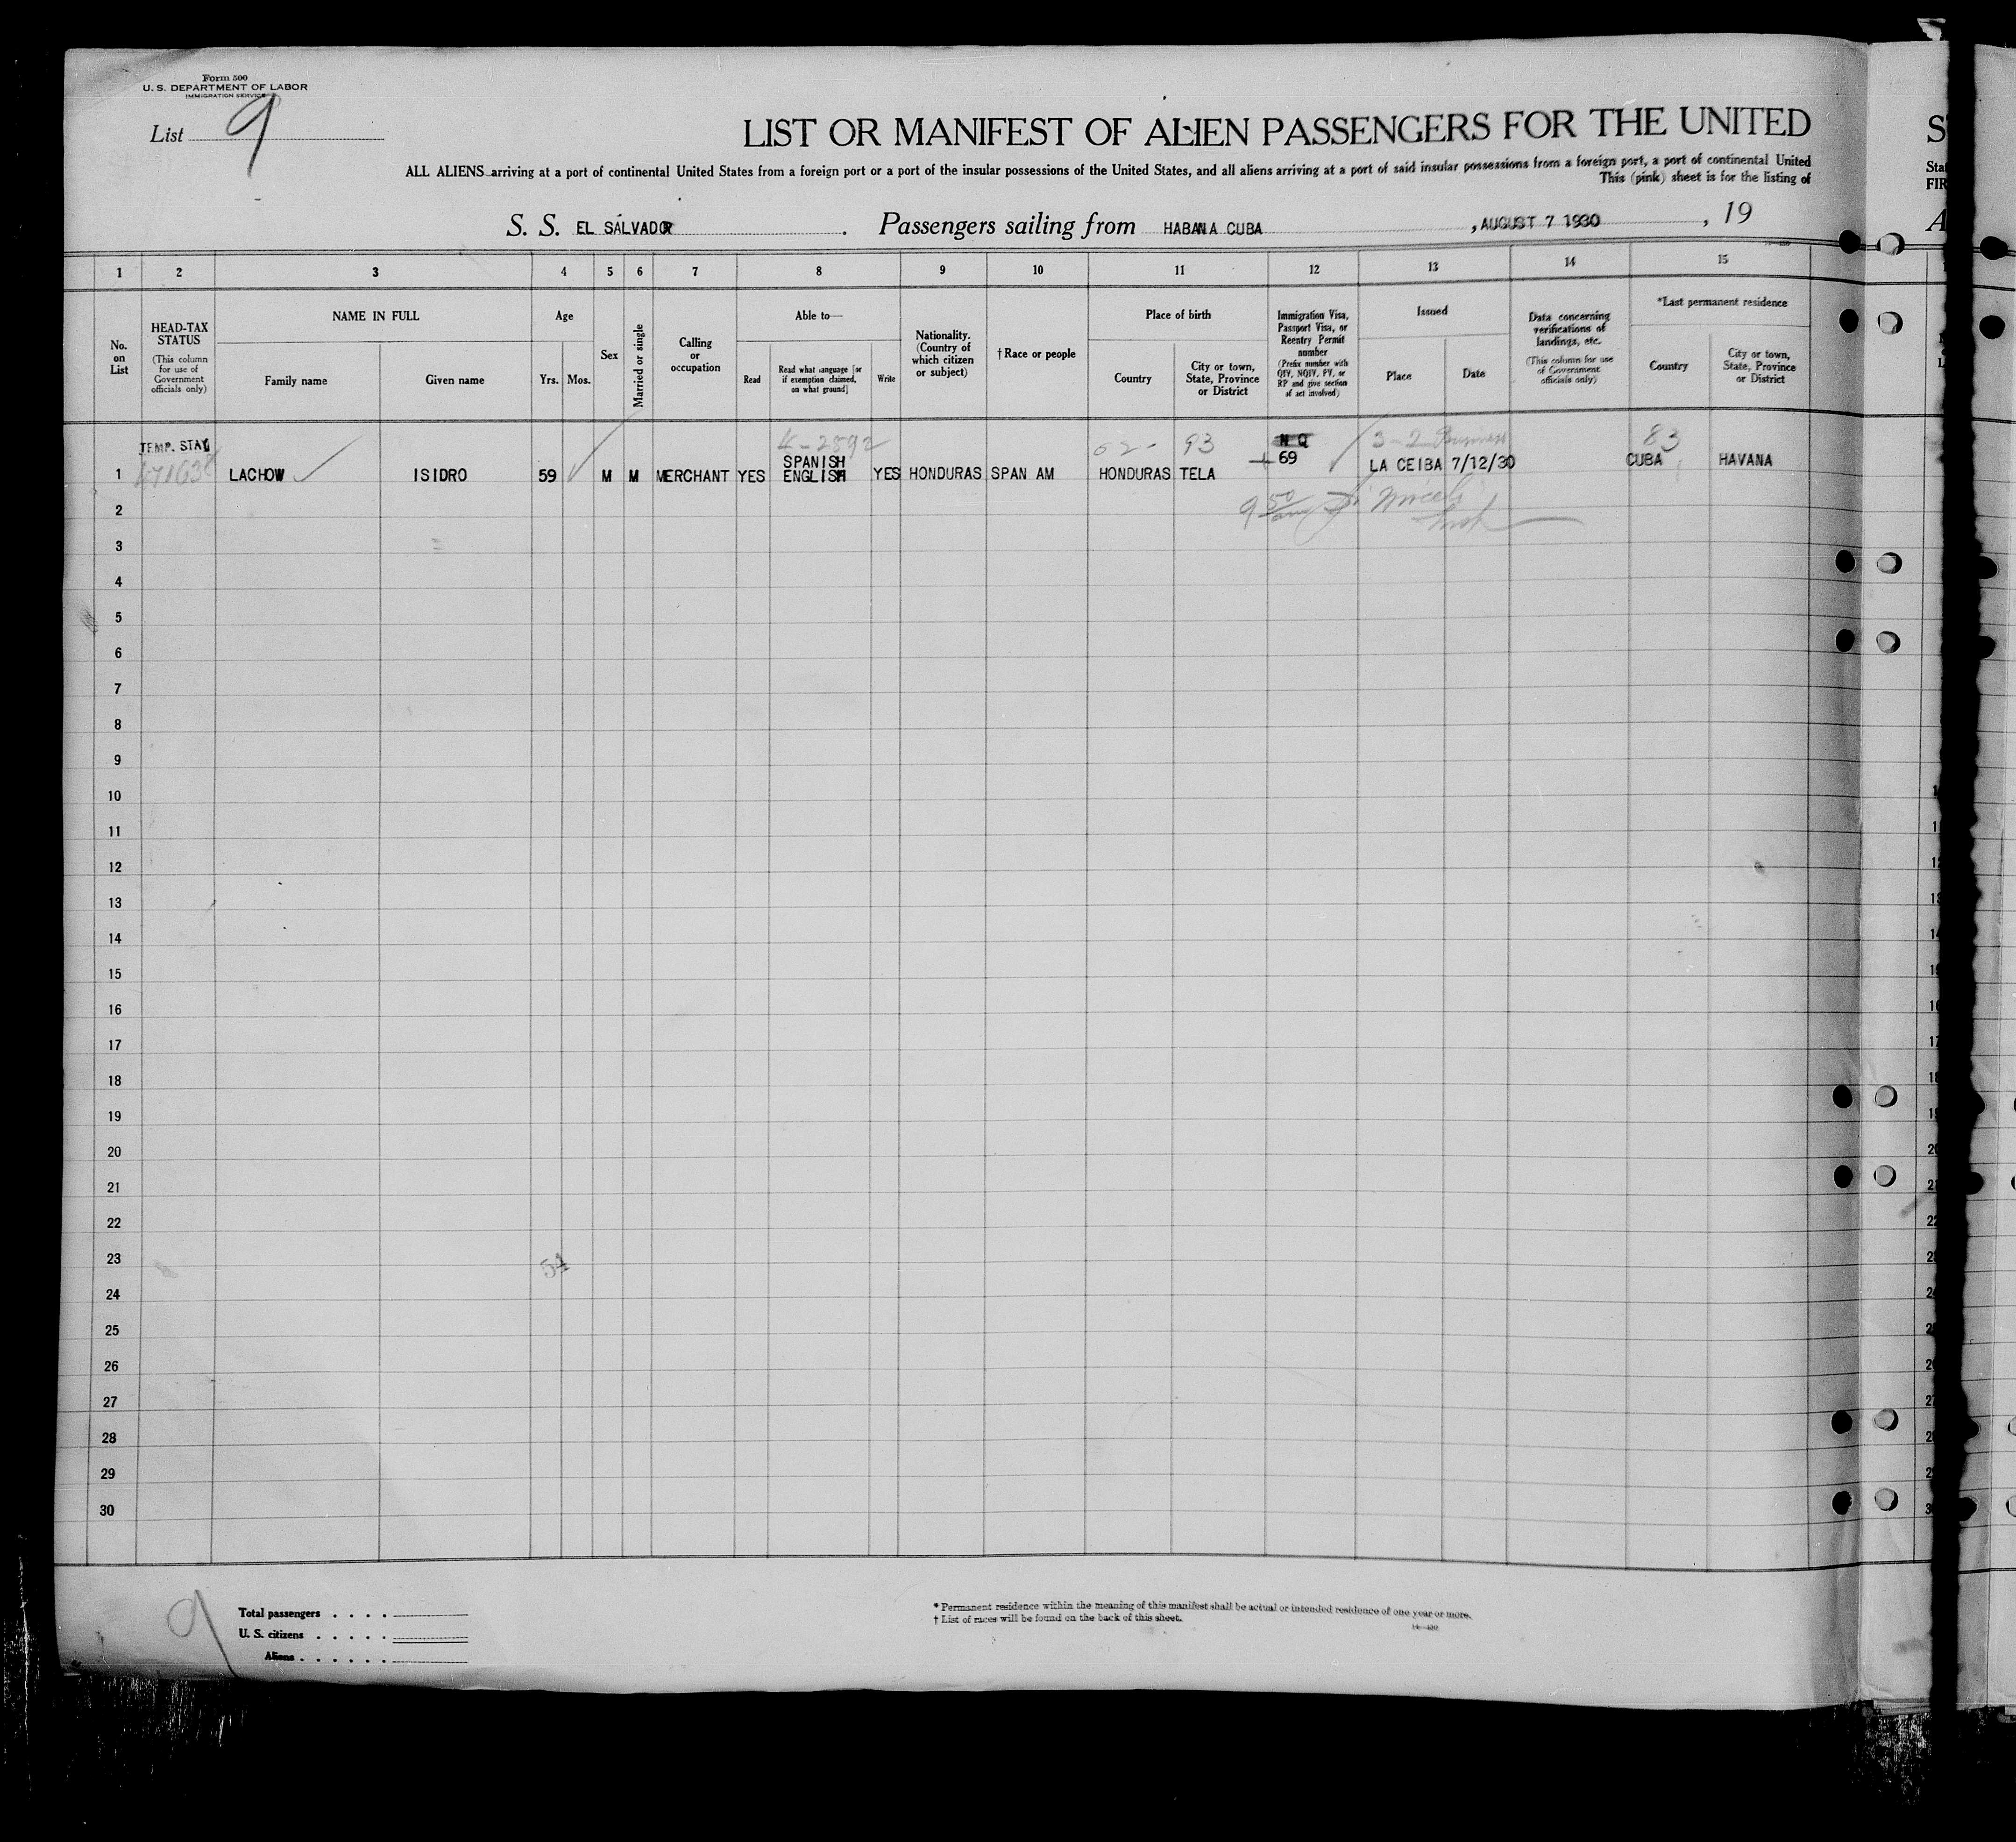 Form 500
U. S. DEPARTMENT OF LABOR
IMMIGRATION SERVICE
List 9
LIST OR MANIFEST OF ALIEN PASSENGERS FOR THE UNITED
ALL ALIENS arriving at a port of continental United States from a foreign port or a port of the insular possessions of the United States, and all aliens arriving at a port of said insular possessions from a foreign port, a port of continental United
This (pink) sheet is for the listing of
S. S. EL SALVADOR . Passengers sailing from HABANA CUBA , AUGUST 7 1930 , 19
1 2 3 4 5 6 7 8 9 10 11 12 13 14 15
No. on List
HEAD-TAX STATUS
(This column for use of Government officials only)
NAME IN FULL
Family name
Given name
Age
Yrs. Mos.
Sex
Married or single
Calling or occupation
Able to—
Read
Read what language [or if exemption claimed, on what ground]
Write
Nationality. (Country of which citizen or subject)
†Race or people
Place of birth
Country
City or town, State, Province or District
Immigration Visa, Passport Visa, or Reentry Permit number
(Prefix number with QIV, NQIV, PV, or RP and give section of act involved)
Issued
Place
Date
Data concerning verifications of landings, etc.
(This column for use of Government officials only)
*Last permanent residence
Country
City or town, State, Province or District
TEMP. STAY 93 N Q 3-2 Business 83
1 LACHOW ISIDRO 59 M M MERCHANT YES SPANISH ENGLISH YES HONDURAS SPAN AM HONDURAS TELA 69 LA CEIBA 7/12/30 CUBA HAVANA
2
3
4
5
6
7
8
9
10
11
12
13
14
15
16
17
18
19
20
21
22
23
54
24
25
26
27
28
29
30
9
Total passengers . . . .
U. S. citizens . . . . .
Aliens . . . . . .
* Permanent residence within the meaning of this manifest shall be actual or intended residence of one year or more.
† List of races will be found on the back of this sheet.